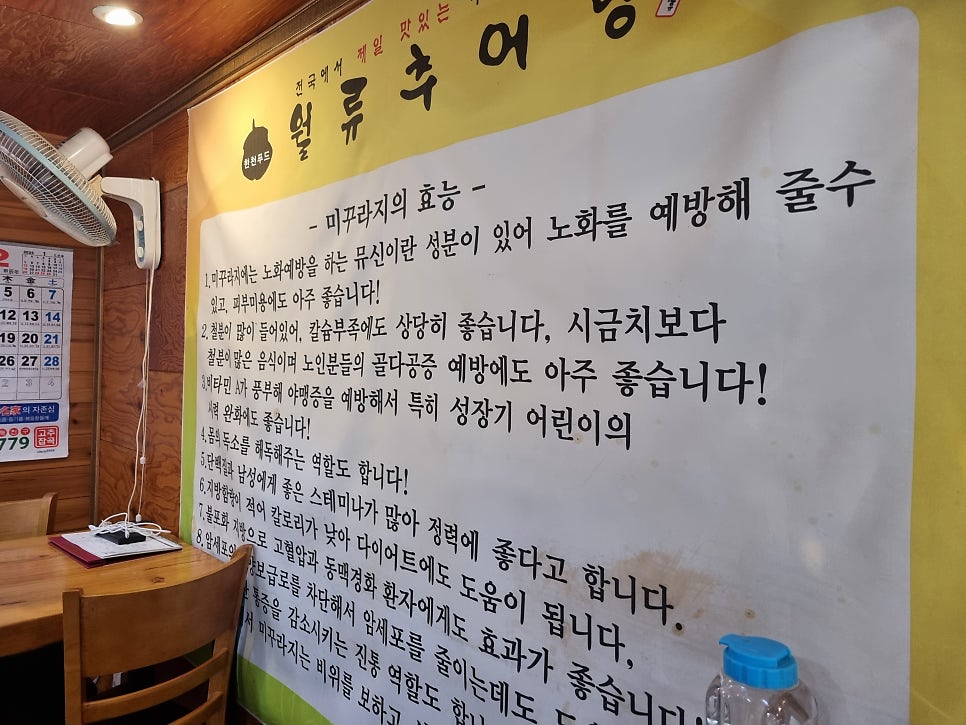 전국에서 제일 맛있는
월류추어탕
한천푸드
- 미꾸라지의 효능 -
1.미꾸라지에는 노화예방을 하는 뮤신이란 성분이 있어 노화를 예방해 줄수
있고, 피부미용에도 아주 좋습니다!
2. 철분이 많이 들어있어, 칼슘부족에도 상당히 좋습니다, 시금치보다
철분이 많은 음식이며 노인분들의 골다공증 예방에도 아주 좋습니다!
3.비타민 A가 풍부해 야맹증을 예방해서 특히 성장기 어린이의
시력 완화에도 좋습니다!
4.몸의 독소를 해독해주는 역할도 합니다!
5.단백질과 남성에게 좋은 스테미나가 많아 정력에 좋다고 합니다.
6.지방함량이 적어 칼로리가 낮아 다이어트에도 도움이 됩니다,
7.불포화 지방으로 고혈압과 동맥경화 환자에게도 효과가 좋습니다!
8.암세포의 영양보급로를 차단해서 암세포를 줄이는데도
통증을 감소시키는 진통 역할도
미꾸라지는 비위를 보하고
2
木 金 土
5 6 7
12 13 14
19 20 21
26 27 28
2 3 4
名家의 자존심
779
고추
잡곡